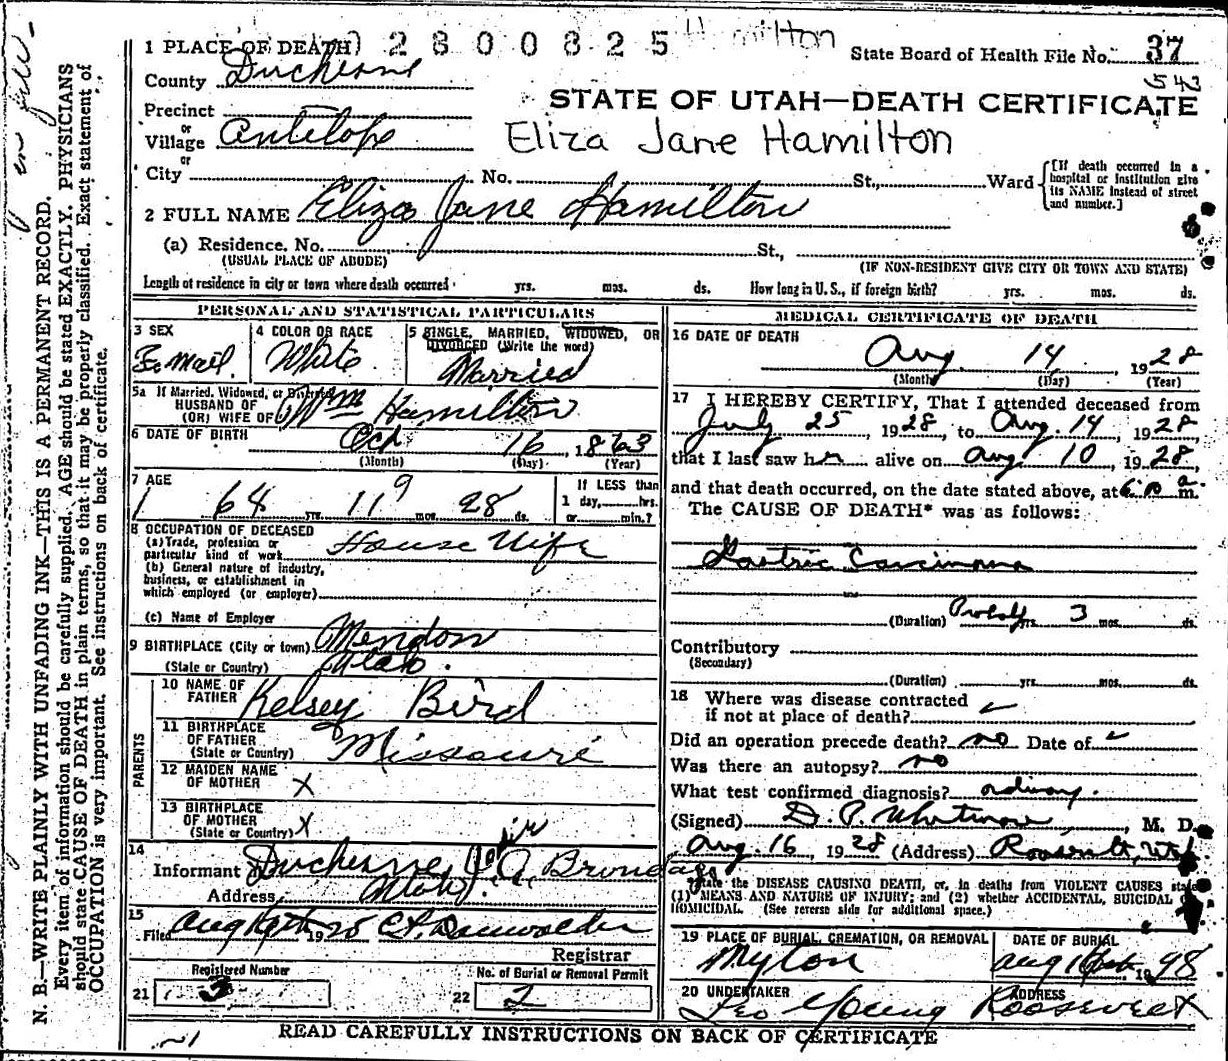 in full.
N. B.—WRITE PLAINLY WITH UNFADING INK—THIS IS A PERMANENT RECORD.
Every item of information should be carefully supplied. AGE should be stated EXACTLY. PHYSICIANS
should state CAUSE OF DEATH in plain terms, so that it may be properly classified. Exact statement of
OCCUPATION is very important. See instructions on back of certificate.
1 PLACE OF DEATH 0 2 8 0 0 8 2 5 Hamilton State Board of Health File No. 37
County Duchesne 543
STATE OF UTAH—DEATH CERTIFICATE
Precinct
or
Village Antelope
Eliza Jane Hamilton
or
City No. St., Ward [If death occurred in a hospital or institution give its NAME instead of street and number.]
2 FULL NAME Eliza Jane Hamilton
(a) Residence. No. St.,
(USUAL PLACE OF ABODE) (IF NON-RESIDENT GIVE CITY OR TOWN AND STATE)
Length of residence in city or town where death occurred yrs. mos. ds. How long in U. S., if foreign birth? yrs. mos. ds.
PERSONAL AND STATISTICAL PARTICULARS
3 SEX
Femail.
4 COLOR OR RACE
White
5 SINGLE, MARRIED, WIDOWED, OR
DIVORCED (Write the word)
Married
5a If Married, Widowed, or Divorced
HUSBAND OF
(OR) WIFE OF Wm Hamilton
6 DATE OF BIRTH Oct 16, 1863
(Month) (Day) (Year)
7 AGE
64 yrs. 11 9 mos. 28 ds.
If LESS than
1 day, hrs.
or min.?
8 OCCUPATION OF DECEASED
(a) Trade, profession or
particular kind of work House Wife
(b) General nature of industry,
business, or establishment in
which employed (or employer)
(c) Name of Employer
9 BIRTHPLACE (City or town) Mendon
(State or Country) Utah.
PARENTS
10 NAME OF
FATHER Kelsey Bird
11 BIRTHPLACE
OF FATHER
(State or Country) Missouri
12 MAIDEN NAME
OF MOTHER X
13 BIRTHPLACE
OF MOTHER
(State or Country) X
14
Informant A. Brundage
Address Duchesne Utah.
15
Filed Aug 19th 1928
Registrar
Registered Number
21 3
No. of Burial or Removal Permit
22 2
MEDICAL CERTIFICATE OF DEATH
16 DATE OF DEATH
Aug. 14 1928
(Month) (Day) (Year)
17 I HEREBY CERTIFY, That I attended deceased from
July 25, 1928, to Aug. 14, 1928
that I last saw her alive on Aug. 10, 1928,
and that death occurred, on the date stated above, at a m.
The CAUSE OF DEATH* was as follows:
Gastric Carcinoma
(Duration) Probably yrs. 3 mos. ds.
Contributory
(Secondary)
(Duration) yrs. mos. ds.
18 Where was disease contracted
if not at place of death?
Did an operation precede death? no Date of
Was there an autopsy? no
What test confirmed diagnosis? ordinary.
(Signed) D. P. Whitmore, M. D.
Aug. 16 1928 (Address) Roosevelt, Utah
*State the DISEASE CAUSING DEATH, or, in deaths from VIOLENT CAUSES state
(1) MEANS AND NATURE OF INJURY; and (2) whether ACCIDENTAL, SUICIDAL or
HOMICIDAL. (See reverse side for additional space.)
19 PLACE OF BURIAL, CREMATION, OR REMOVAL
Myton
DATE OF BURIAL
Aug 16th 1928
20 UNDERTAKER
Leo Young
ADDRESS
Roosevelt
READ CAREFULLY INSTRUCTIONS ON BACK OF CERTIFICATE